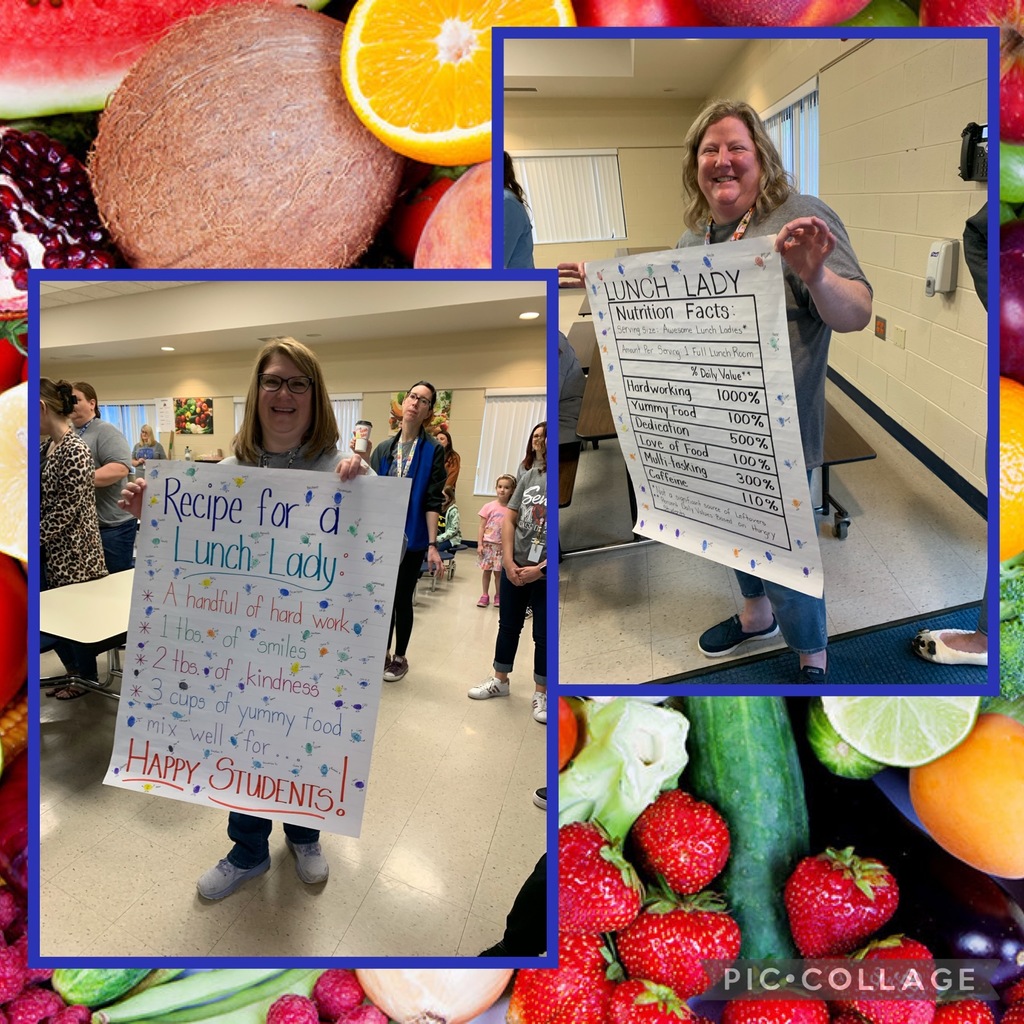 Recipe for a
Lunch Lady:
* A handful of hard work
* 1 tbs. of smiles
* 2 tbs. of kindness
* 3 cups of yummy food
mix well for....
HAPPY STUDENTS!
LUNCH LADY
Nutrition Facts:
Serving Size: Awesome Lunch Ladies*
Amount Per Serving 1 Full Lunch Room
% Daily Value**
Hardworking 1000%
Yummy Food 100%
Dedication 500%
Love of Food 100%
Multi-Tasking 300%
Caffeine 110%
*Not a significant source of Leftovers
**Percent Daily Values Based on Hungry
PIC•COLLAGE